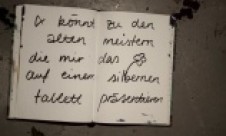 könnt zu den
alten meistern
die mir das
auf einem silbernen
tablett präsentieren